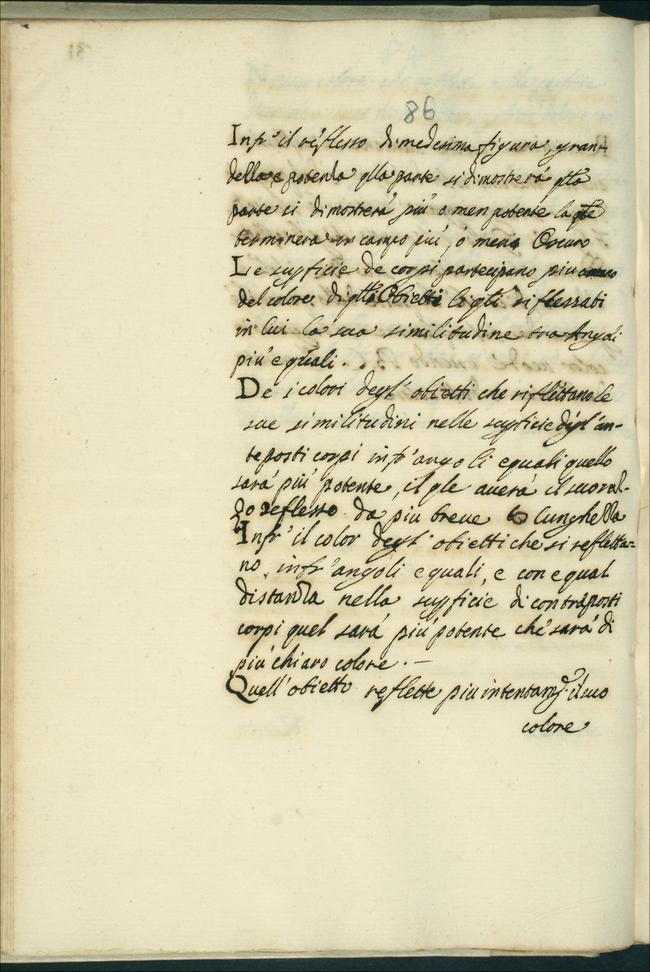 86
Infr' il réflesso di medesima figura, gran=
della, e potenza qlla parte si dimostrerà qlla
parte si dimostrerà più o men potente la qle
terminera in campo più, o meno Oscuro
Le supficie de corpi partecipano piu
del colore di qlli Obietti li qli riflessati
in lui la sua similitudine tra Angoli
più equali.
De i colori degl' obietti che riflettano le
sue similitudini nelle supficie degl' an-
teposti corpi infr' angoli equali quello
sarà più potente, il qle averá il suo ral-
zo reflesso da piu breve lunghezza
Infr' il color degl' obietti che si refletta=
no infr' angoli equali, e con equal
distanza nella supficie di contraposti
corpi quel sará più potente che sará di
più chiaro colore. —
Quell' obietto reflette piu intentam.te il suo
colore